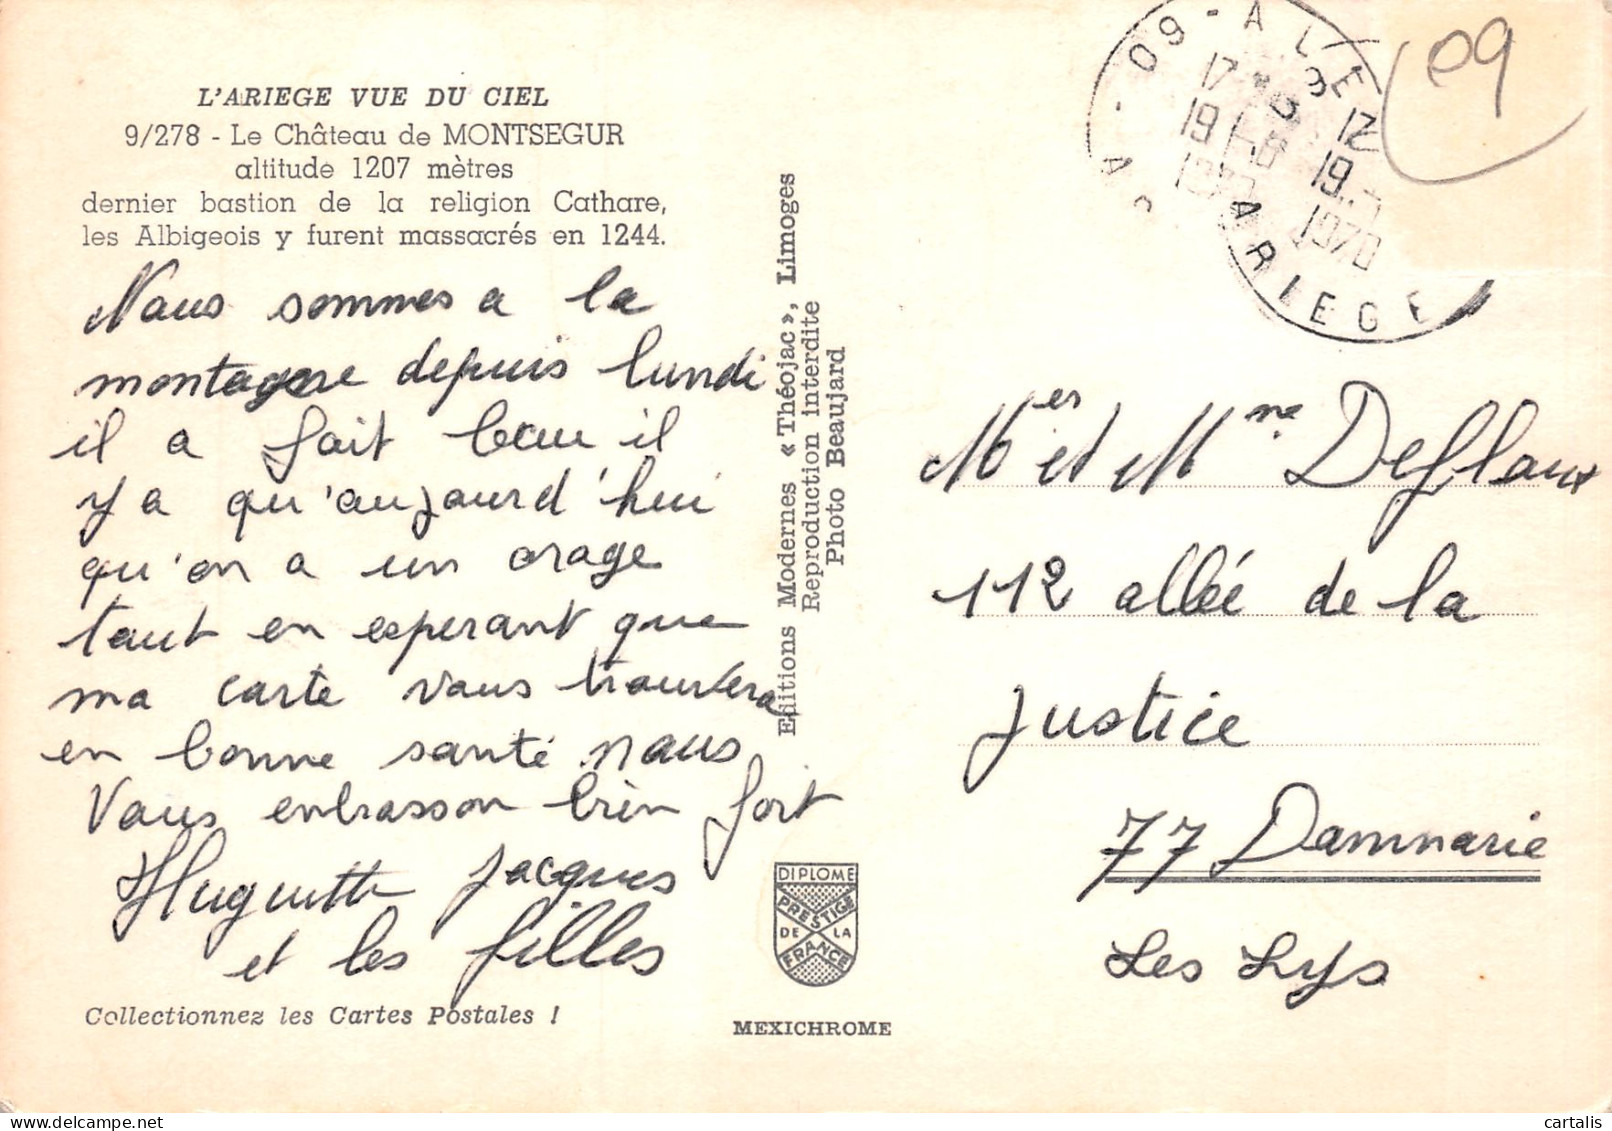 L'ARIEGE VUE DU CIEL
9/278 - Le Château de MONTSEGUR
altitude 1207 mètres
dernier bastion de la religion Cathare,
les Albigeois y furent massacrés en 1244.
Nous sommes a la
montagne depuis lundi
il a fait beau il
y a qu'aujourd'hui
qu'on a un orage
tout en esperant que
ma carte vous trouvera
en bonne santé nous
Vous enbrasson bien fort
Huguette Jacques
et les filles
Collectionnez les Cartes Postales !
Editions Modernes « Théojac », Limoges
Reproduction interdite
Photo Beaujard
DIPLOME
PRESTIGE
DE LA
FRANCE
MEXICHROME
09
09 - ALE
17
19
12
19
1970
ARIEGE
Mer et Mme Deflaux
112 allée de la
Justice
77 Dammarie
Les Lys
cartalis